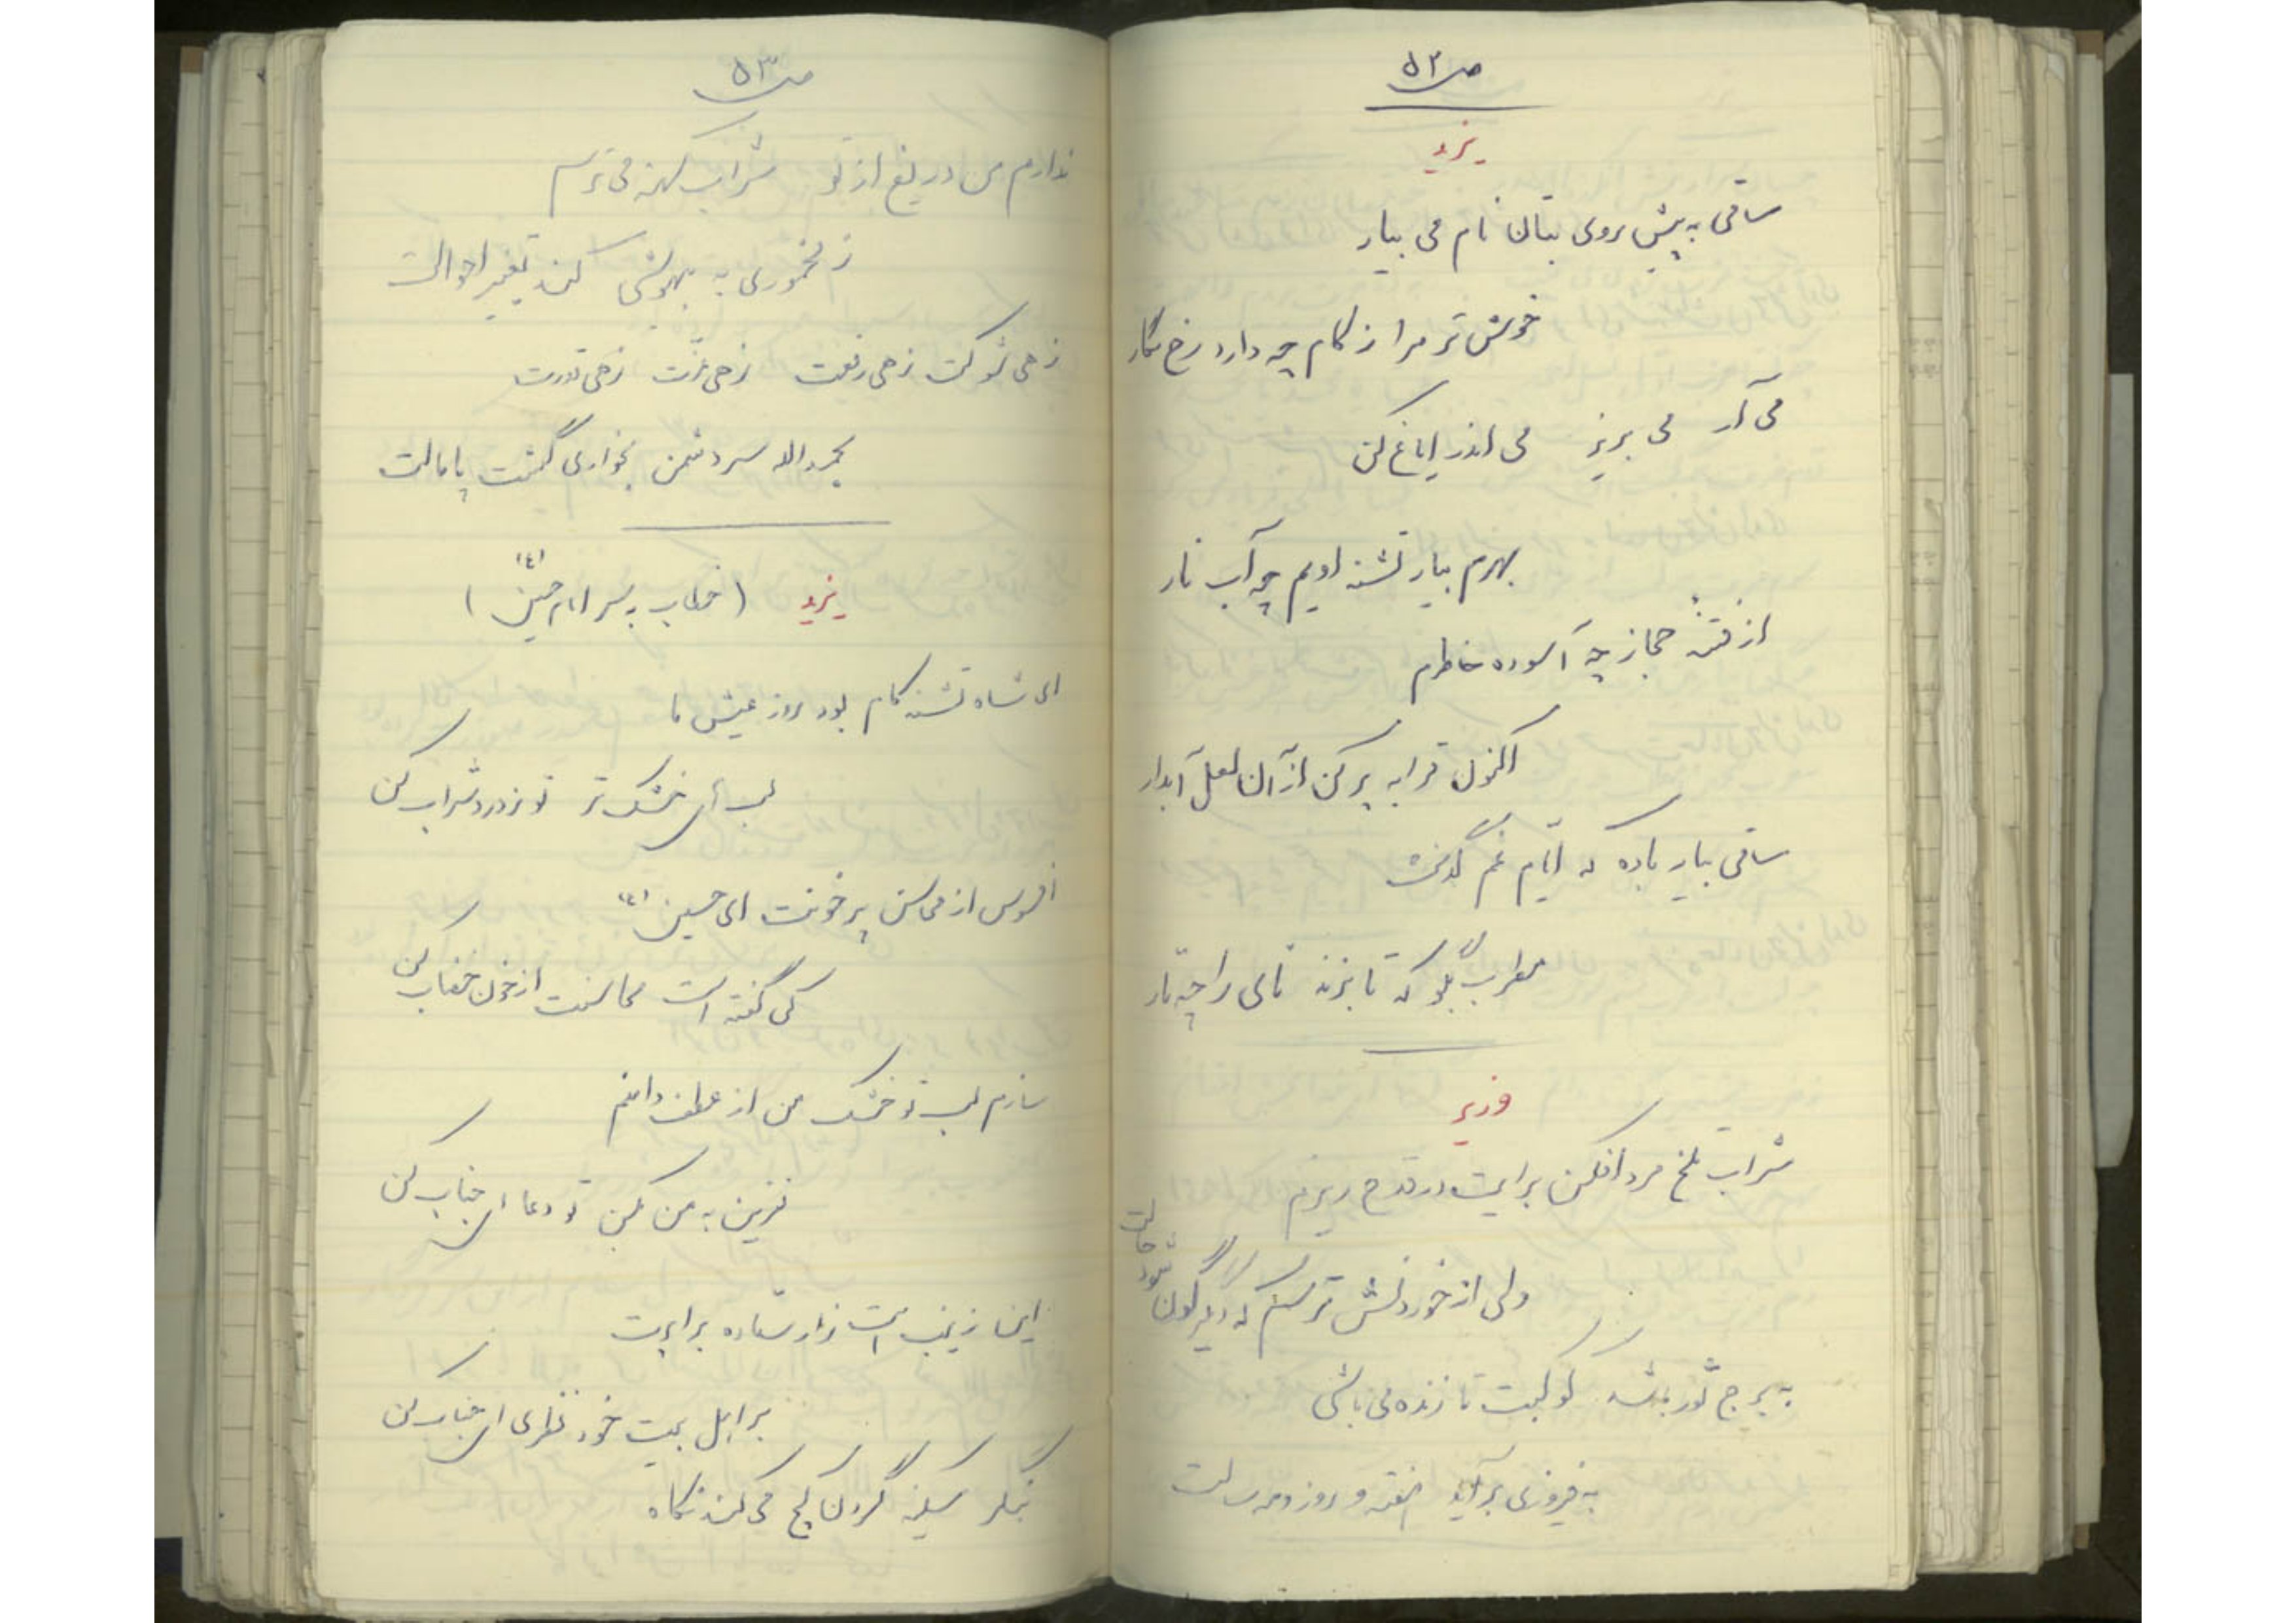 ص ۵۲
یزید
ساقی به پیش روی بتان نام می بیار
خوش تر مرا ز کام چه دارد رخ نگار
می آر می بریز می اندر ایاغ کن
بهرم بیار تشنه اویم چه آب نار
از فتنه حجاز چه آسوده خاطرم
اکنون قرابه پر کن از آن لعل آبدار
ساقی بیار باده که ایام غم گذشت
مطرب بگو که تا بزند نای را چه تار
وزیر
شراب تلخ مرد افکن برایت در قدح ریزم
ولی از خوردنش ترسم که دیگرگون شود حالت
به برج ثور باشد کوکبت تا زنده می باشی
به فیروزی برآید هفته و روز و مه و سالت
ص ۵۳
ندارم من دریغ از تو شراب کهنه می ترسم
ز مخموری به بیهوشی کند تغییر احوالت
زهی شوکت زهی رفعت زهی عزّت زهی قدرت
بحمدالله سر دشمن بخواری گشت پامالت
یزید (خطاب به سر امام حسین (ع))
ای شاه تشنه کام بود روز عیش ما
لب های خشک تر تو ز درد شراب کن
افسوس از محاسن پر خونت ای حسین (ع)
کی گفته است محاسنت از خون خضاب کن
سازم لب تو خشک من از عطف دامنم
نفرین به من مکن تو دعا اجتناب کن
این زینب است زار ستاده برابرت
بر اهل بیت خود نظری اجتناب کن
بنگر سکینه گردن کج می کند نگاه